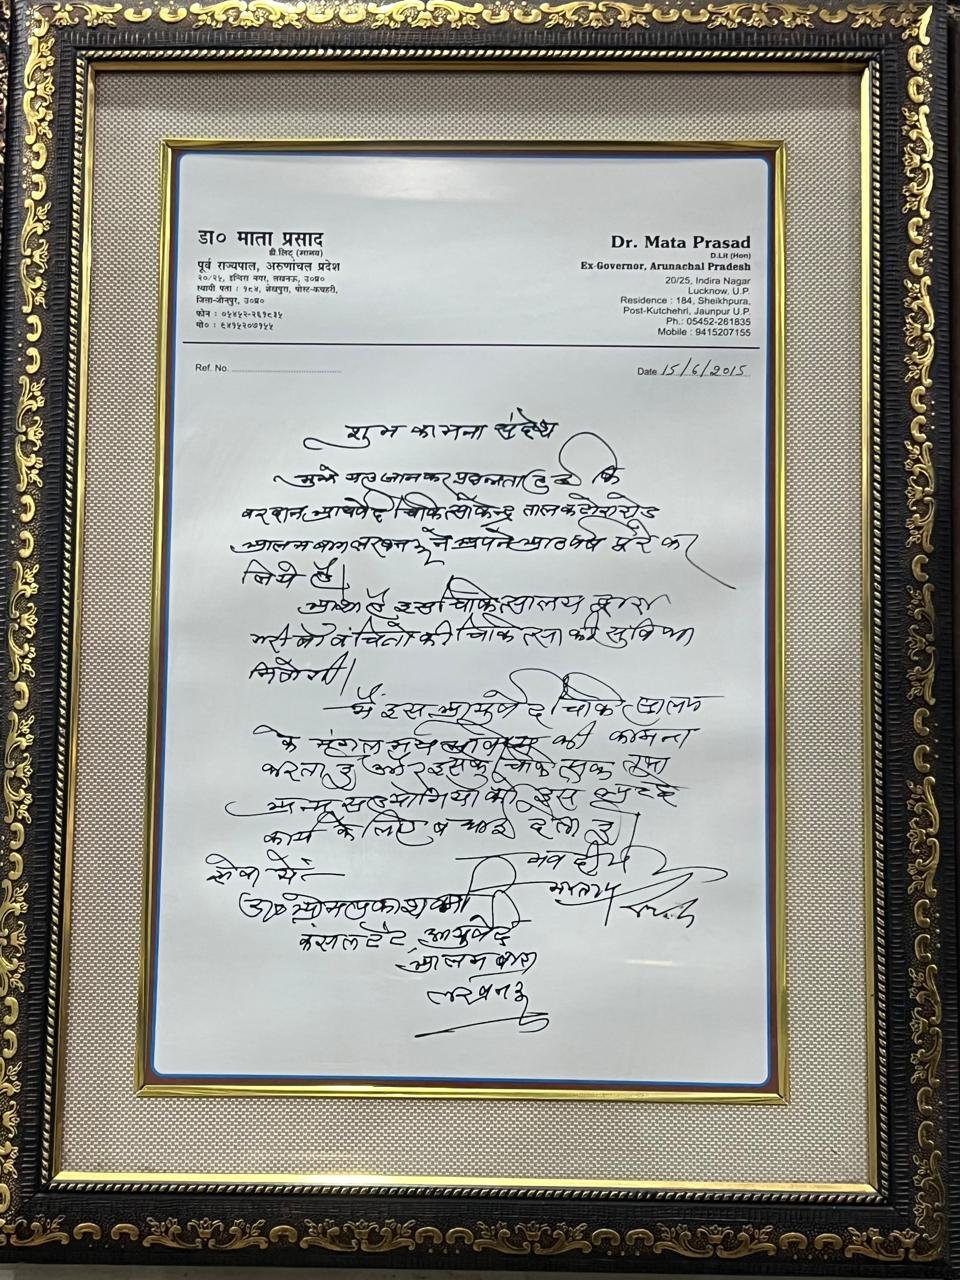 डा० माता प्रसाद
डी.लिट् (मानद)
पूर्व राज्यपाल, अरुणांचल प्रदेश
२०/२५, इन्दिरा नगर, लखनऊ, उ०प्र०
स्थायी पता : १८४, शेखपुरा, पोस्ट-कचहरी,
जिला-जौनपुर, उ०प्र०
फोन : ०५४५२-२६१८३५
मो० : ९४१५२०७१५५
Dr. Mata Prasad
D.Lit (Hon)
Ex-Governor, Arunachal Pradesh
20/25, Indira Nagar
Lucknow, U.P.
Residence : 184, Sheikhpura,
Post-Kutchehri, Jaunpur U.P.
Ph.: 05452-261835
Mobile : 9415207155
Ref. No.
Date 15/6/2015
शुभ कामना संदेश
मुझे यह जानकर प्रसन्नता हुई कि
वरदान आयुर्वेद चिकित्सा केन्द्र तालकटोरा रोड
आलमबाग लखनऊ ने अपने आठ वर्ष पूरे कर
लिये हैं।
आशा है इस चिकित्सालय द्वारा
गरीबों वंचितों को चिकित्सा की सुविधा
मिलेगी।
मैं इस आयुर्वेद चिकित्सालय
के मंगलमय की कामना
करता हूँ और इसके चिकित्सक तथा
अन्य सहयोगियों को इस
कार्य के लिए बधाई देता हूँ।
भवदीय
माता प्रसाद
सेवा में:-
डा० ओमप्रकाश वर्मा
कंसलटेंट आयुर्वेद
आलमबाग
लखनऊ